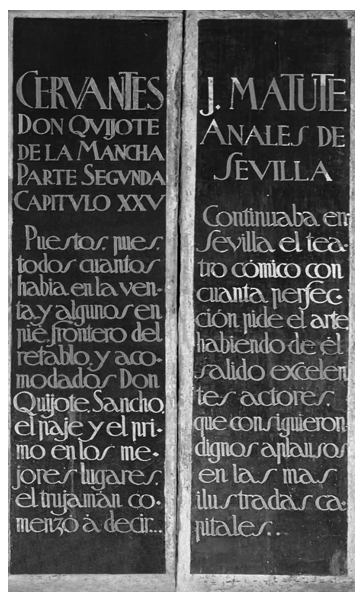 CERVANTES
DON QVIJOTE
DE LA MANCHA
PARTE SEGVNDA
CAPITVLO XXV
Puestos, pues,
todos cuantos
habia en la ven-
ta, y algunos en
pie, frontero del
retablo, y aco-
modados Don
Quijote, Sancho,
el paje y el pri-
mo en los me-
jores lugares,
el trujamán co-
menzó á decir...
J. MATUTE
ANALES DE
SEVILLA
Continuaba en
Sevilla el tea-
tro cómico con
cuanta perfec-
ción pide el arte,
habiendo de él
salido excelen-
tes actores,
que consiguieron
dignos aplausos
en las mas
ilustradas ca-
pitales...